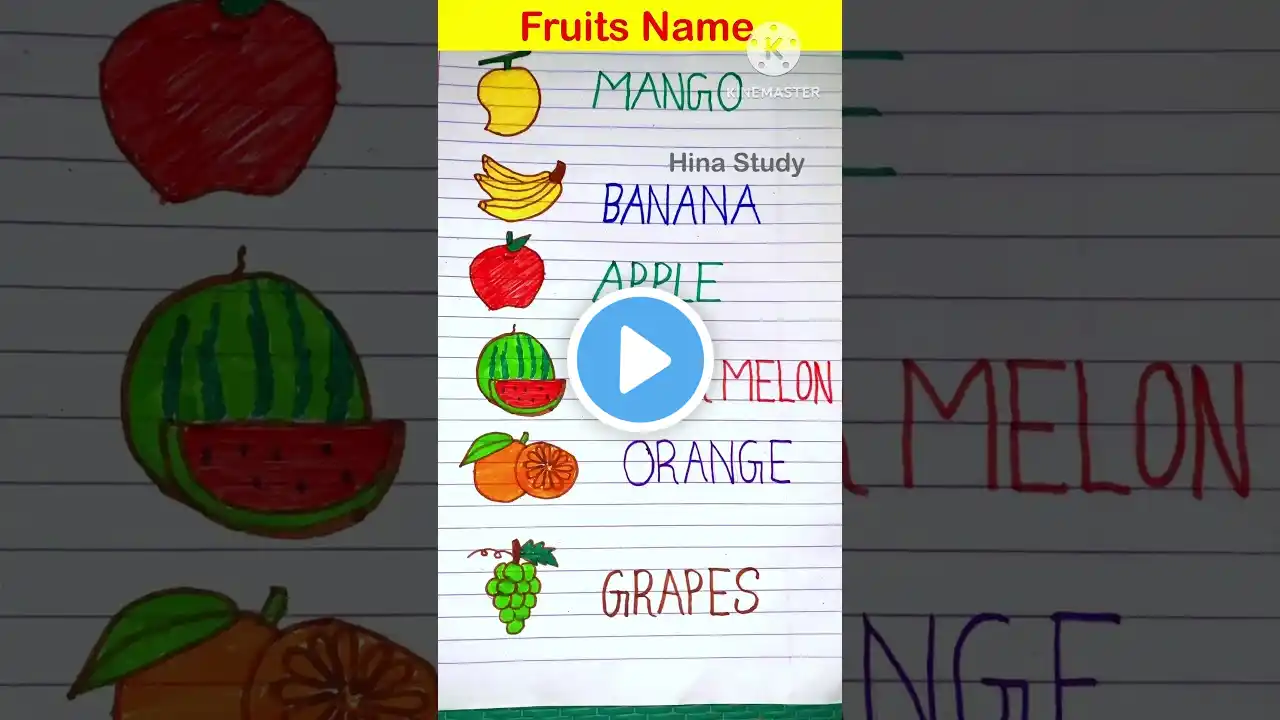 Fruits Name
K
KINEMASTER
MANGO
Hina Study
BANANA
APPLE
MELON
ORANGE
GRAPES
MELON
NGE